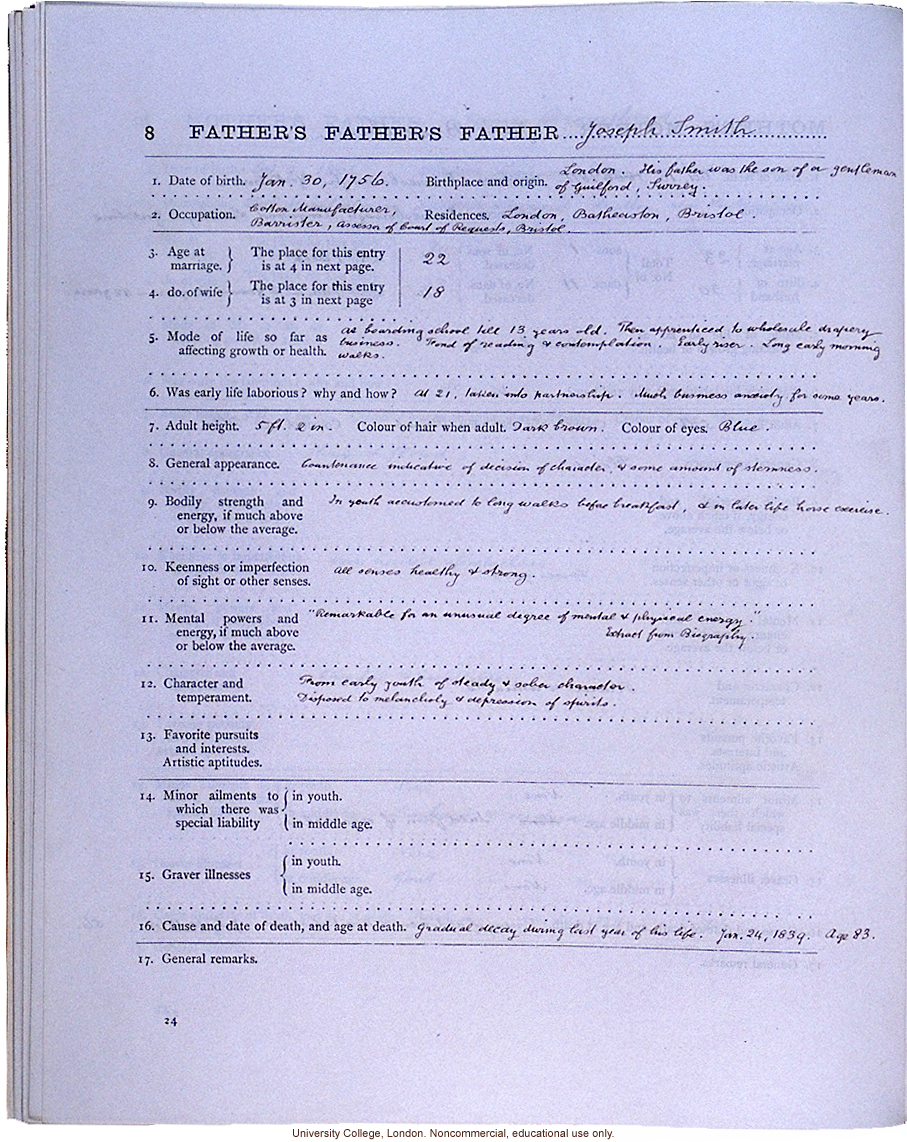 8 FATHER'S FATHER'S FATHER....Joseph Smith............
1. Date of birth. Jan. 30, 1756. Birthplace and origin. London. His father was the son of a gentleman
of Guilford, Surrey.
2. Occupation. Cotton Manufacturer, Residences. London, Batheaston, Bristol.
Barrister, Assessor of Court of Requests, Bristol
3. Age at marriage. } The place for this entry is at 4 in next page. 22
4. do. of wife } The place for this entry is at 3 in next page 18
5. Mode of life so far as affecting growth or health. At boarding school till 13 years old. Then apprenticed to wholesale drapery
business. Fond of reading & contemplation. Early riser. Long early morning
walks.
6. Was early life laborious? why and how? At 21, taken into partnership. Much business anxiety for some years.
7. Adult height. 5 ft. 2 in. Colour of hair when adult. Dark brown. Colour of eyes. Blue.
8. General appearance. Countenance indicative of decision of character, & some amount of sternness.
9. Bodily strength and In youth accustomed to long walks before breakfast, & in later life horse exercise.
energy, if much above
or below the average.
10. Keenness or imperfection All senses healthy & strong.
of sight or other senses.
11. Mental powers and "Remarkable for an unusual degree of mental & physical energy."
energy, if much above Extract from Biography.
or below the average.
12. Character and From early youth of steady & sober character.
temperament. Disposed to melancholy & depression of spirits.
13. Favorite pursuits
and interests.
Artistic aptitudes.
14. Minor ailments to { in youth.
which there was
special liability { in middle age.
15. Graver illnesses { in youth.
{ in middle age.
16. Cause and date of death, and age at death. Gradual decay during last year of his life. Jan. 24, 1839. Age 83.
17. General remarks.
24
University College, London. Noncommercial, educational use only.